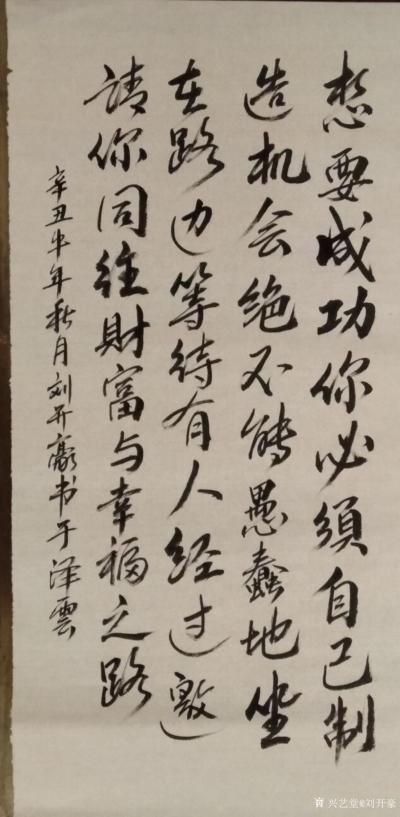 想要成功你必須自己制
造机会绝不能愚蠢地坐
在路边等待有人经过邀
请你同往財富与幸福之路
辛丑牛年秋月刘开豪书于泽雲
兴艺堂@刘开豪